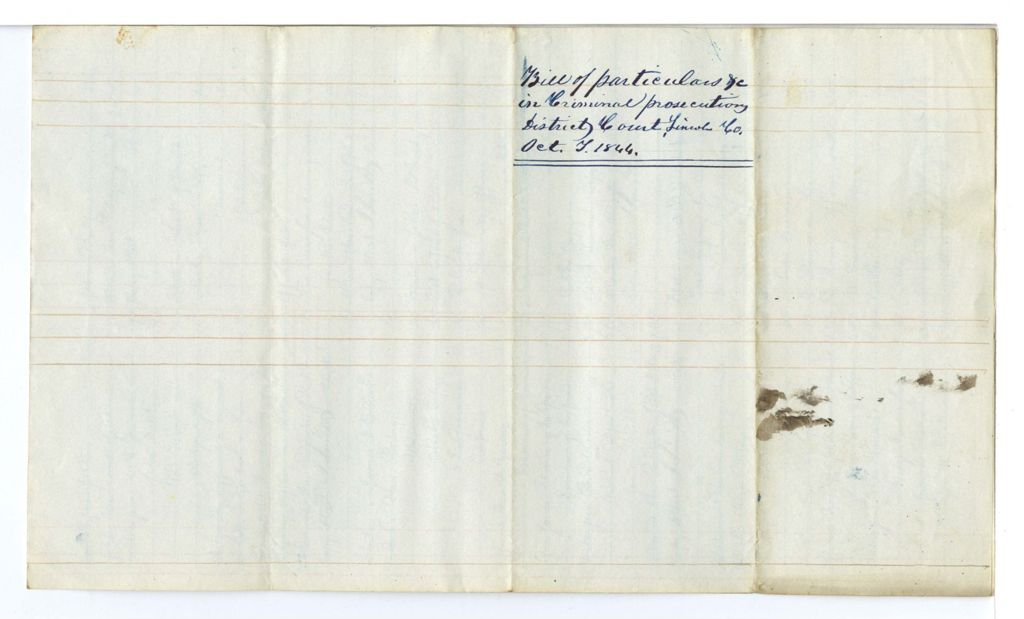 Bill of particulars &c
in Criminal prosecutions
District Court, Lincoln Co.
Oct. T. 1844.